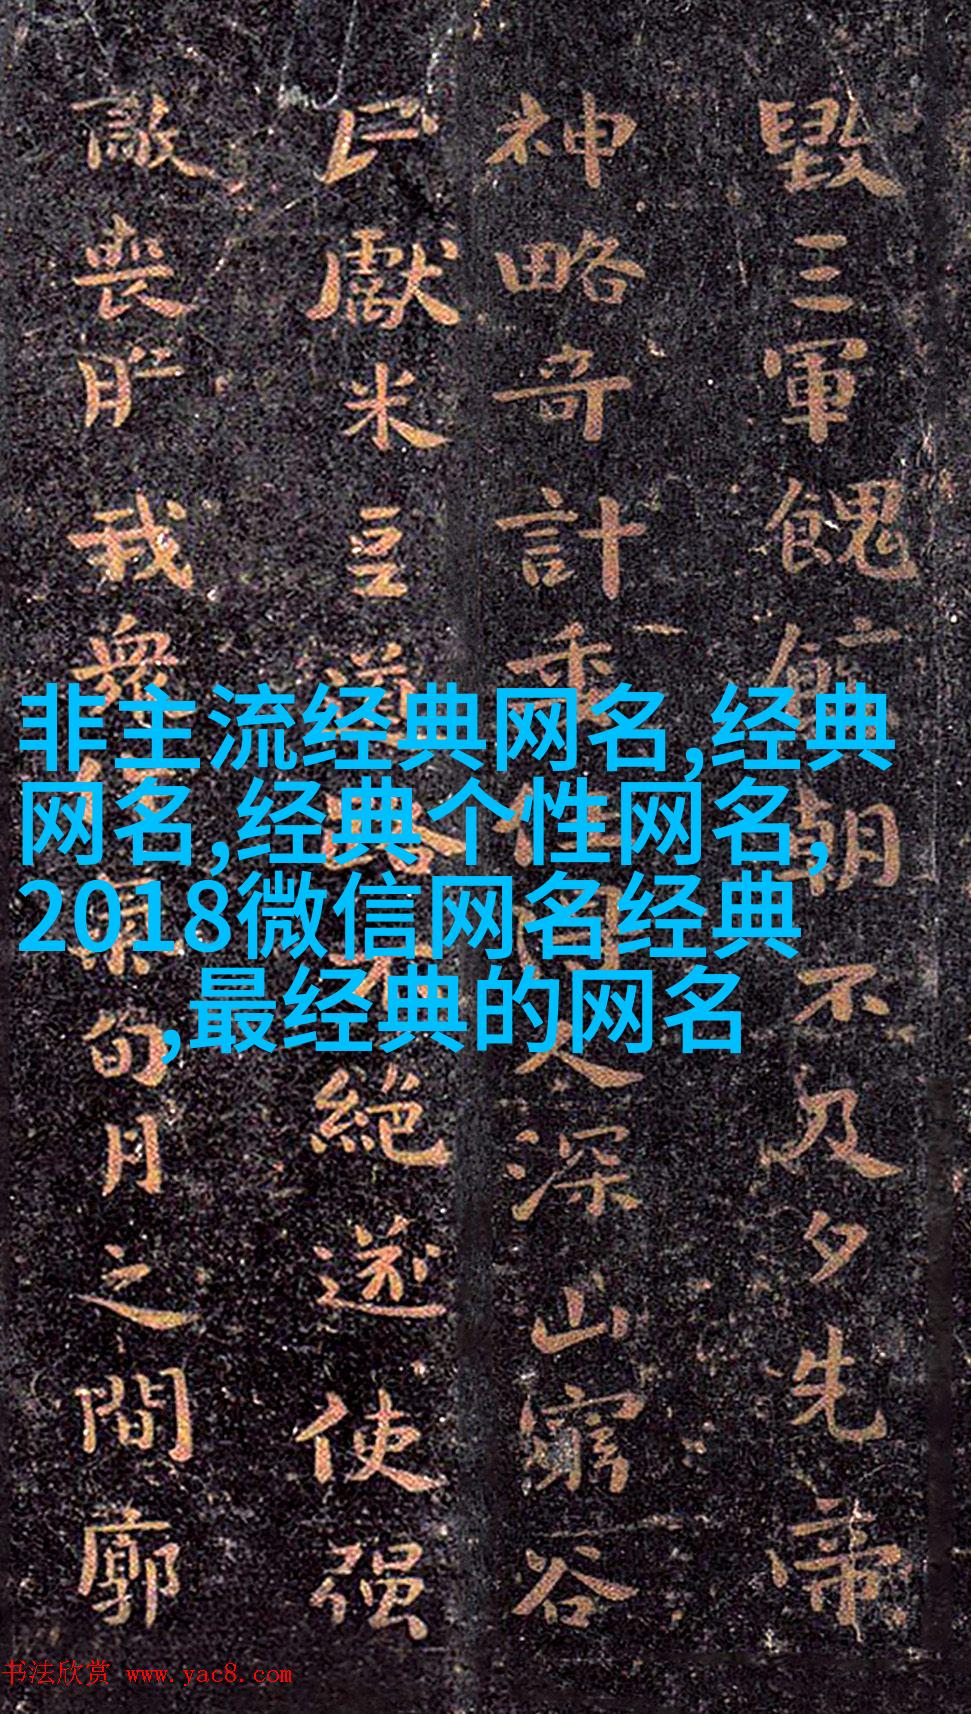 毀三軍餽朝不及夕先帝
神略奇計委任人深山窮谷
民獻米豆道路不絕遂使强
敵喪膽我衆旬月之間廓
非主流经典网名,经典
网名,经典个性网名,
2018微信网名经典
,最经典的网名
书法欣赏 www.yac8.com